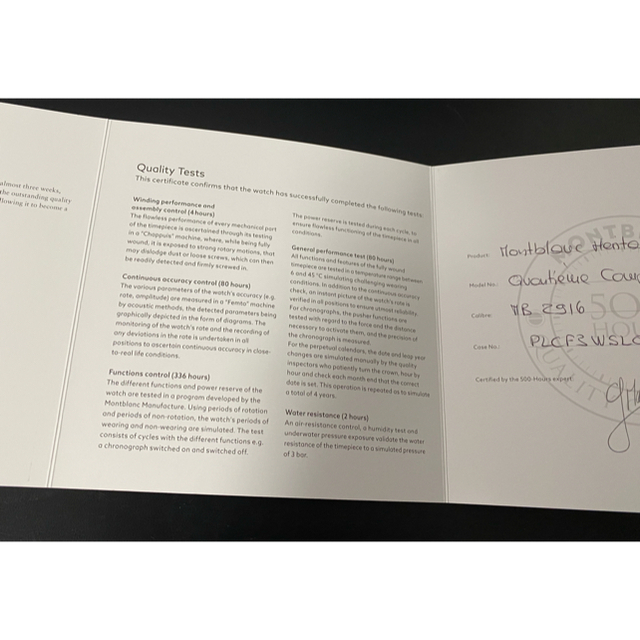 almost three weeks,
the outstanding quality
llowing it to become a
Quality Tests
This certificate confirms that the watch has successfully completed the following tests:
Winding performance and
assembly control (4 hours)
The flawless performance of every mechanical part
of the timepiece is ascertained through its testing
in a "Chappuis" machine, where, while being fully
wound, it is exposed to strong rotary motions, that
may dislodge dust or loose screws, which can then
be readily detected and firmly screwed in.
Continuous accuracy control (80 hours)
The various parameters of the watch's accuracy (e.g.
rate, amplitude) are measured in a "Femto" machine
by acoustic methods, the detected parameters being
graphically depicted in the form of diagrams. The
monitoring of the watch's rate and the recording of
any deviations in the rate is undertaken in all
positions to ascertain continuous accuracy in close-
to-real life conditions.
Functions control (336 hours)
The different functions and power reserve of the
watch are tested in a program developed by the
Montblanc Manufacture. Using periods of rotation
and periods of non-rotation, the watch's periods of
wearing and non-wearing are simulated. The test
consists of cycles with the different functions e.g.
a chronograph switched on and switched off.
The power reserve is tested during each cycle, to
ensure flawless functioning of the timepiece in all
conditions.
General performance test (80 hours)
All functions and features of the fully wound
timepiece are tested in a temperature range between
6 and 45 °C simulating challenging wearing
conditions. In addition to the continuous accuracy
check, an instant picture of the watch's rate is
verified in all positions to ensure utmost reliability.
For chronographs, the pusher functions are
tested with regard to the force and the distance
necessary to activate them, and the precision of
the chronograph is measured.
For the perpetual calendars, the date and leap year
changes are simulated manually by the quality
inspectors who patiently turn the crown, hour by
hour and check each month and that the correct
date is set. This operation is repeated so as to simulate
a total of 4 years.
Water resistance (2 hours)
An air-resistance control, a humidity test and
underwater pressure exposure validate the water
resistance of the timepiece to a simulated pressure
of 3 bar.
MONTB
500
HOU
QUALITY
Product:
Model No.:
Calibre: MB 2916
Case No.: PLCF3WSLC
Certified by the 500 Hours expert: